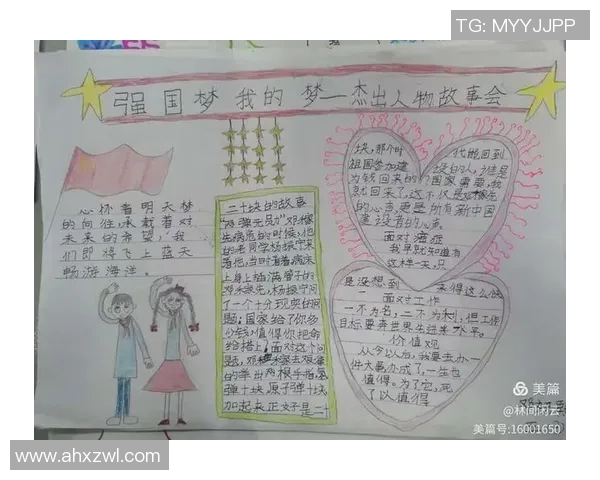 TG: MYYJJPP
强国梦 我的梦—杰出人物故事会
心怀着明天梦
的向往，承载着对
未来的希望，我
们即将飞上蓝天
畅游海洋。
二十块的故事
"两弹元勋"邓稼
先病危的时候，他
的老同学杨振宁来
看他，当时看着病床
上身上插满管子的
邓稼先，杨振宁问
了一个十分现实的问
题：国家给了你多
少钱，值得你把命
给搭上，面对这个问
题，邓稼先
弹十块，原子弹十块
加起来正好是二十
块，那个时代能回到
祖国参加建设的人，谁是
为钱回来的？国家需要，我
就回来了，这不仅是邓稼先
的心声，更是所有新中国
建设者的心声
面对癌症
我早就知道有
这样一天，只
是没想到 来得这么快
面对工作
一不为名，二不为利，但工作
目标要奔世界先进水平。
价值观
从今以后，我要去办一
件大事，办成了，一生也
值得。为了它，死
了以值得
美篇
@林间闲云
美篇号:16001650
www.ahxzwl.com